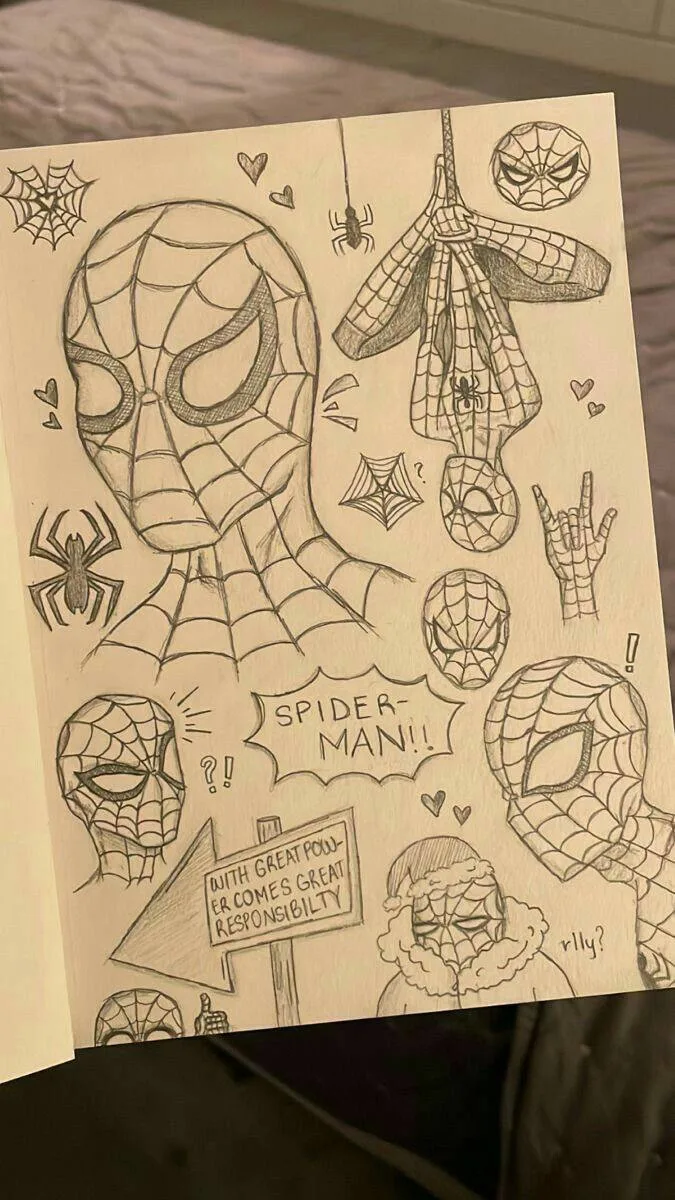 ?
!
SPIDER-
MAN!!
?!
WITH GREAT POW-
ER COMES GREAT
RESPONSIBILTY
rlly?